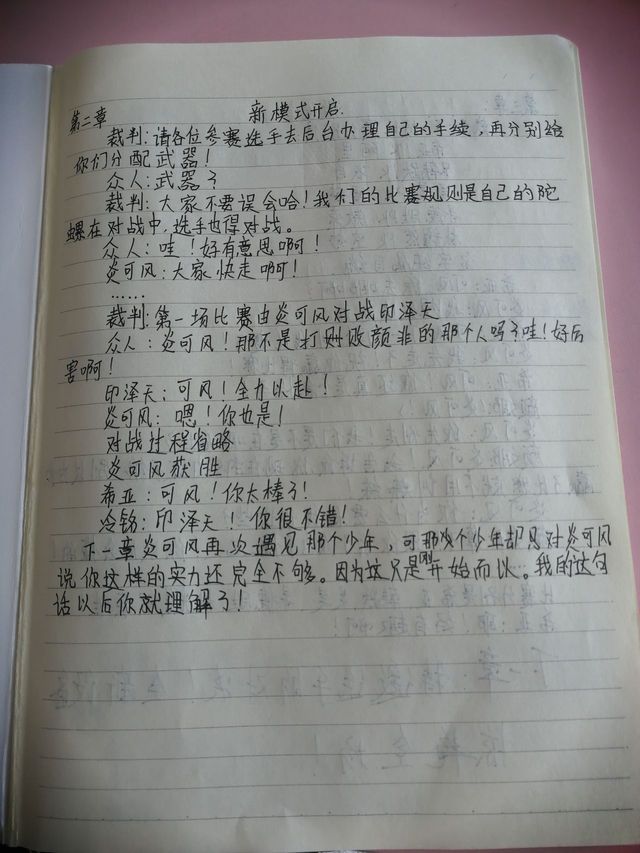 第二章 新模式开启.
裁判:请各位参赛选手去后台办理自己的手续,再分别给
你们分配武器!
众人:武器?
裁判:大家不要误会哈!我们的比赛规则是自己的陀
螺在对战中,选手也得对战。
众人:哇!好有意思啊!
炎可风:大家快走啊!
......
裁判:第一场比赛由炎可风对战印泽天
众人:炎可风!那不是打败颜非的那个人吗?哇!好厉
害啊!
印泽天:可风!全力以赴!
炎可风:嗯!你也是!
对战过程省略
炎可风获胜
希亚:可风!你太棒了!
冷锐:印泽天!你很不错!
下一章炎可风再次遇见那个少年,可那个少年却只对炎可风
说你这样的实力还完全不够。因为这只是刚开始而以。我的这句
话以后你就理解了!